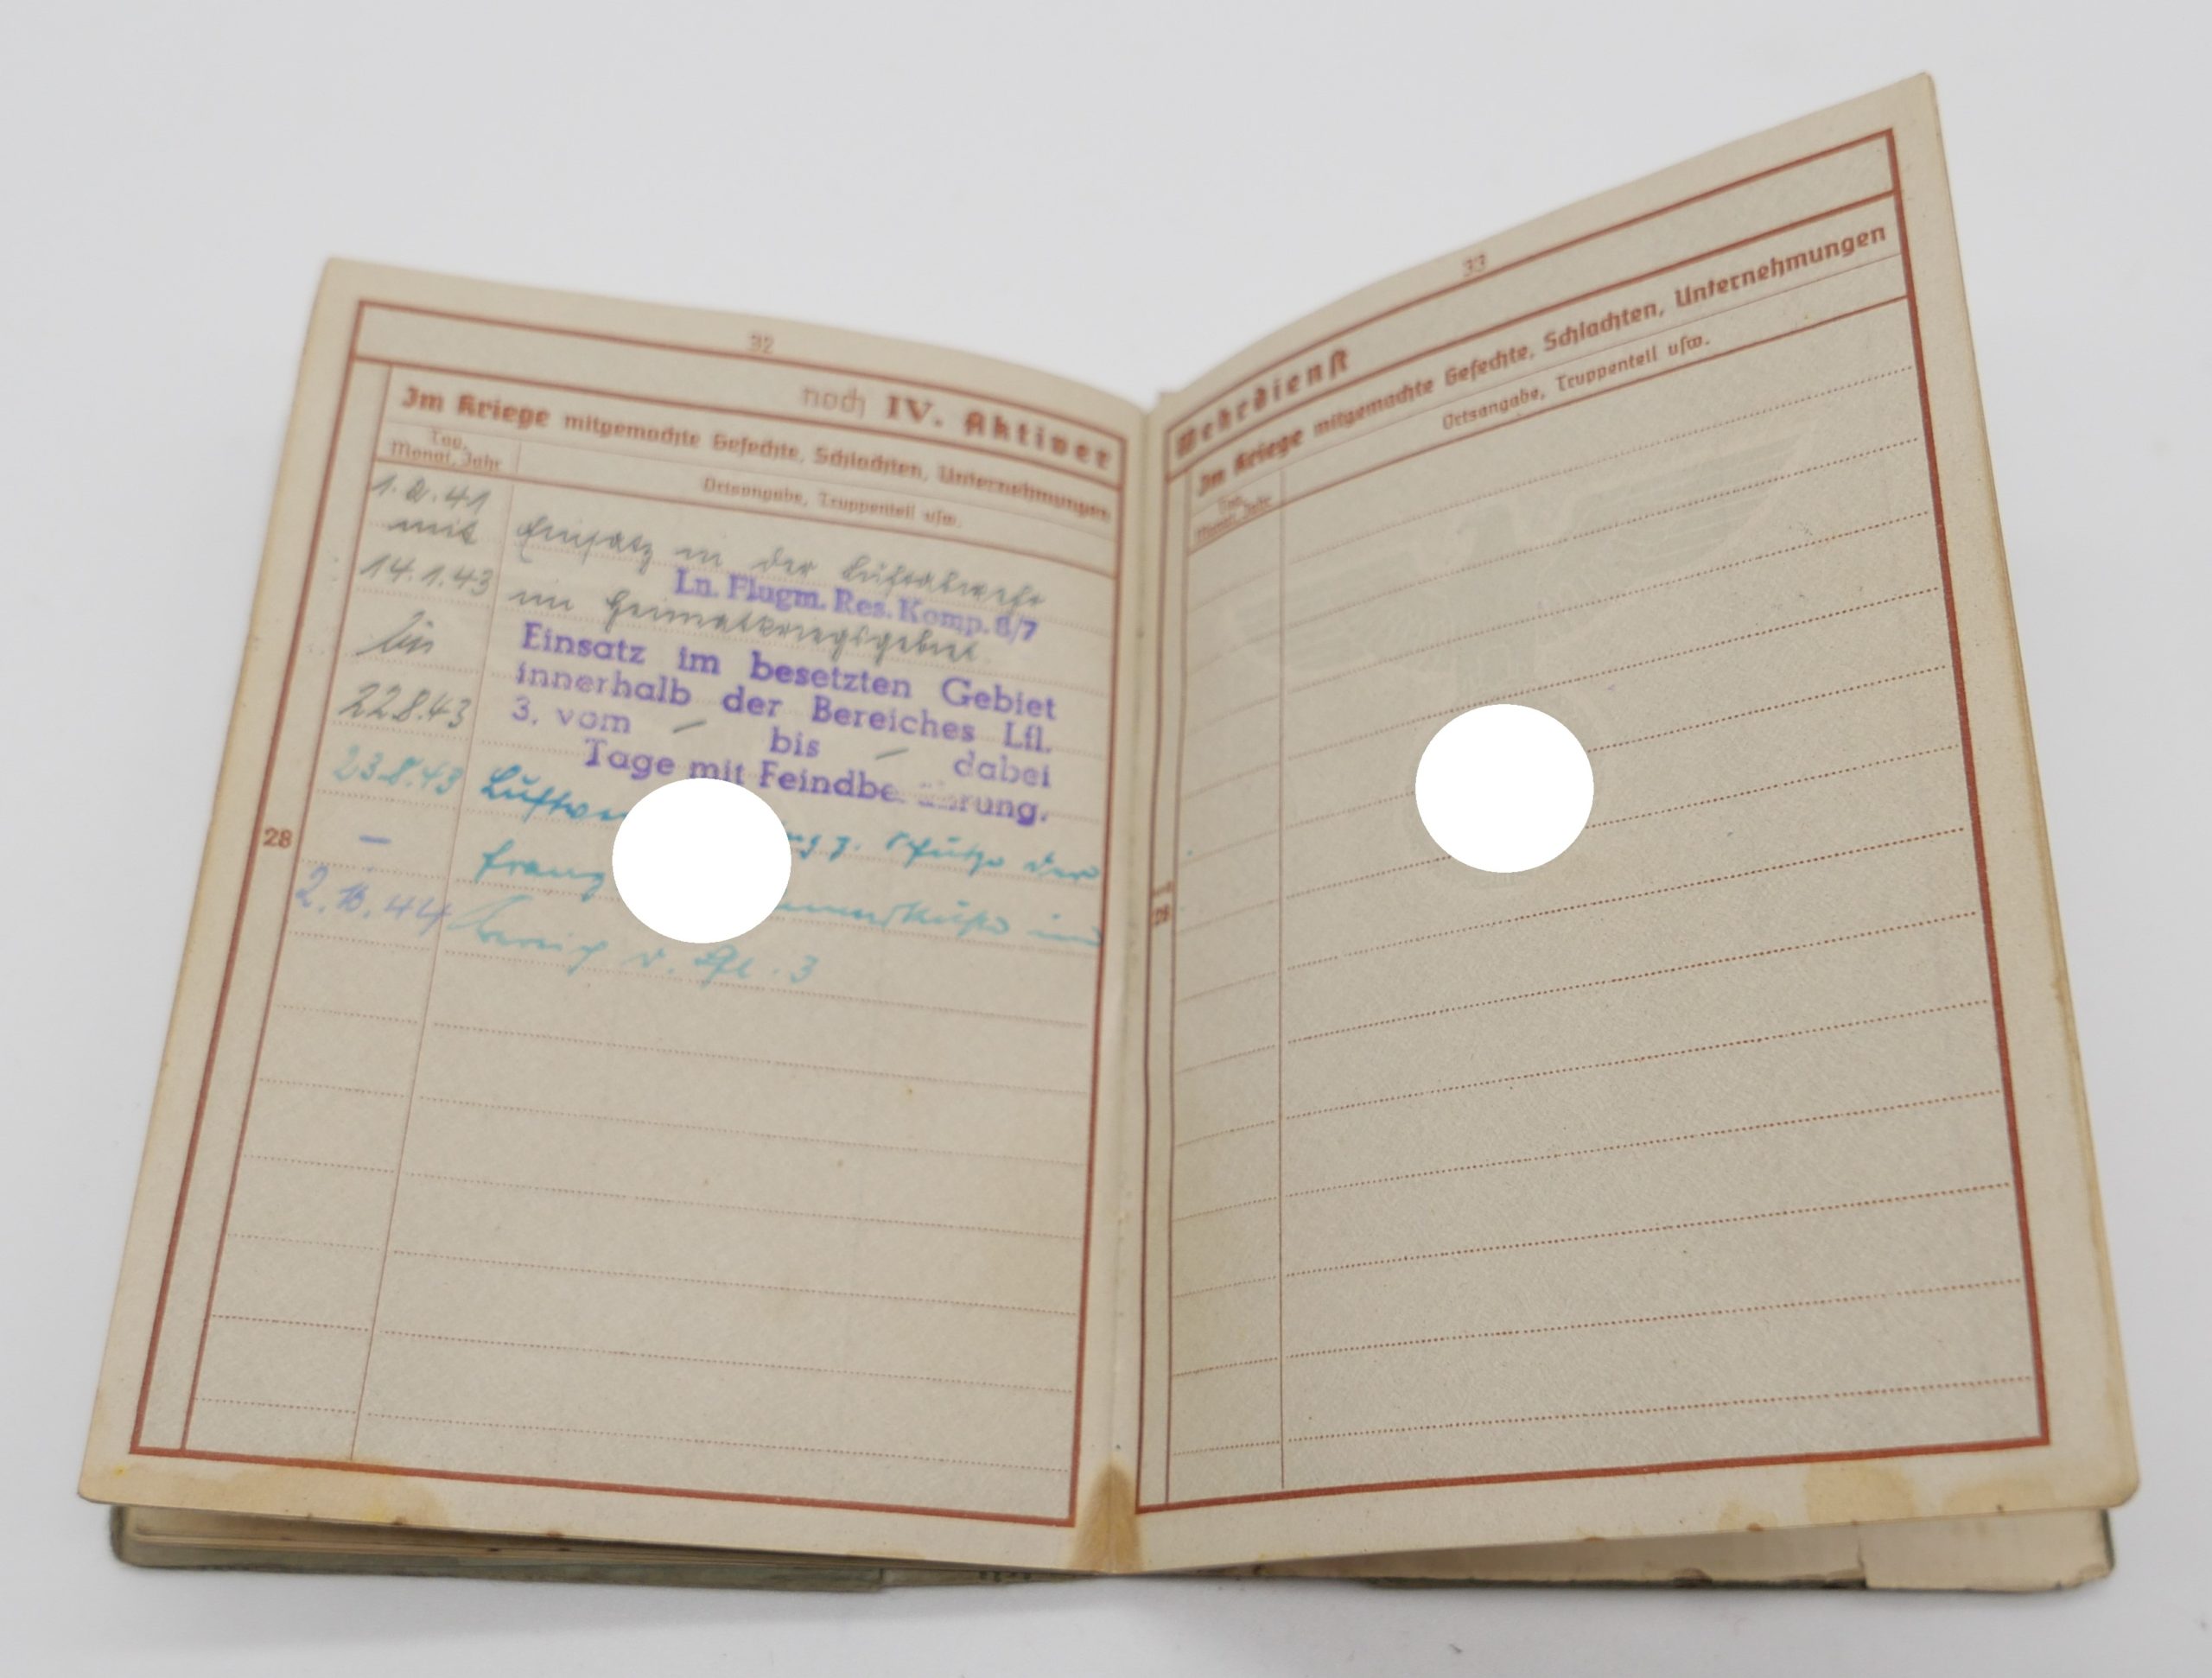 32
noch IV. Aktiver
Im Kriege mitgemachte Gefechte, Schlachten, Unternehmungen
Tag, Monat, Jahr
Ortsangabe, Truppenteil usw.
1.2.41
mit Einsatz in der Luftabwehr
Ln. Flugm. Res. Komp. 8/7
14.1.43 im Heimatkriegsgebiet
bis
Einsatz im besetzten Gebiet
innerhalb der Bereiches Lfl.
22.8.43
3. vom – bis – dabei
Tage mit Feindbe rung.
23.8.43 z. Schutze der
28
–
2.10.44
Bereich d. Lfl. 3
33
Wehrdienst
Im Kriege mitgemachte Gefechte, Schlachten, Unternehmungen
Tag, Monat, Jahr
Ortsangabe, Truppenteil usw.
noch 28